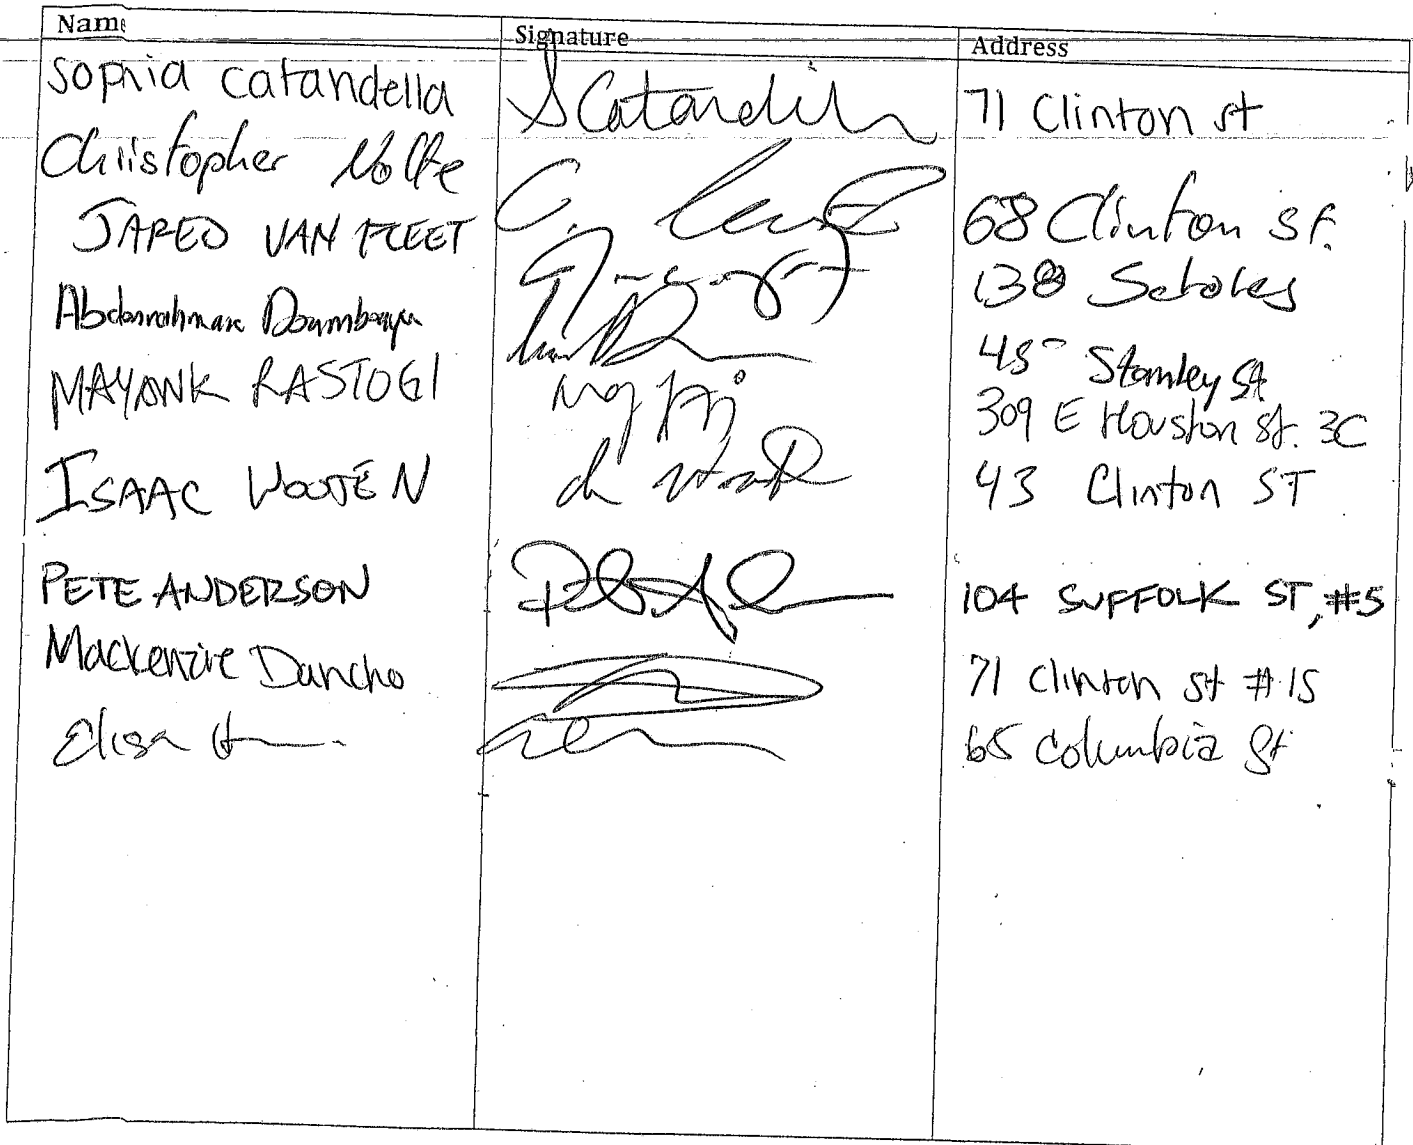 Name Signature Address
Sophia Catandella SCatandella 71 Clinton st
Christopher Nolfe C. 68 Clinton St.
JARED VAN FLEET 138 Scholes
Abdourahmane Doumbouya 45 Stanley St
MAYANK RASTOGI 309 E Houston St. 3C
ISAAC WOOTEN 43 Clinton ST
PETE ANDERSON 104 SUFFOLK ST, #5
Mackenzie Dancho 71 Clinton st #15
Elisa 65 Columbia St